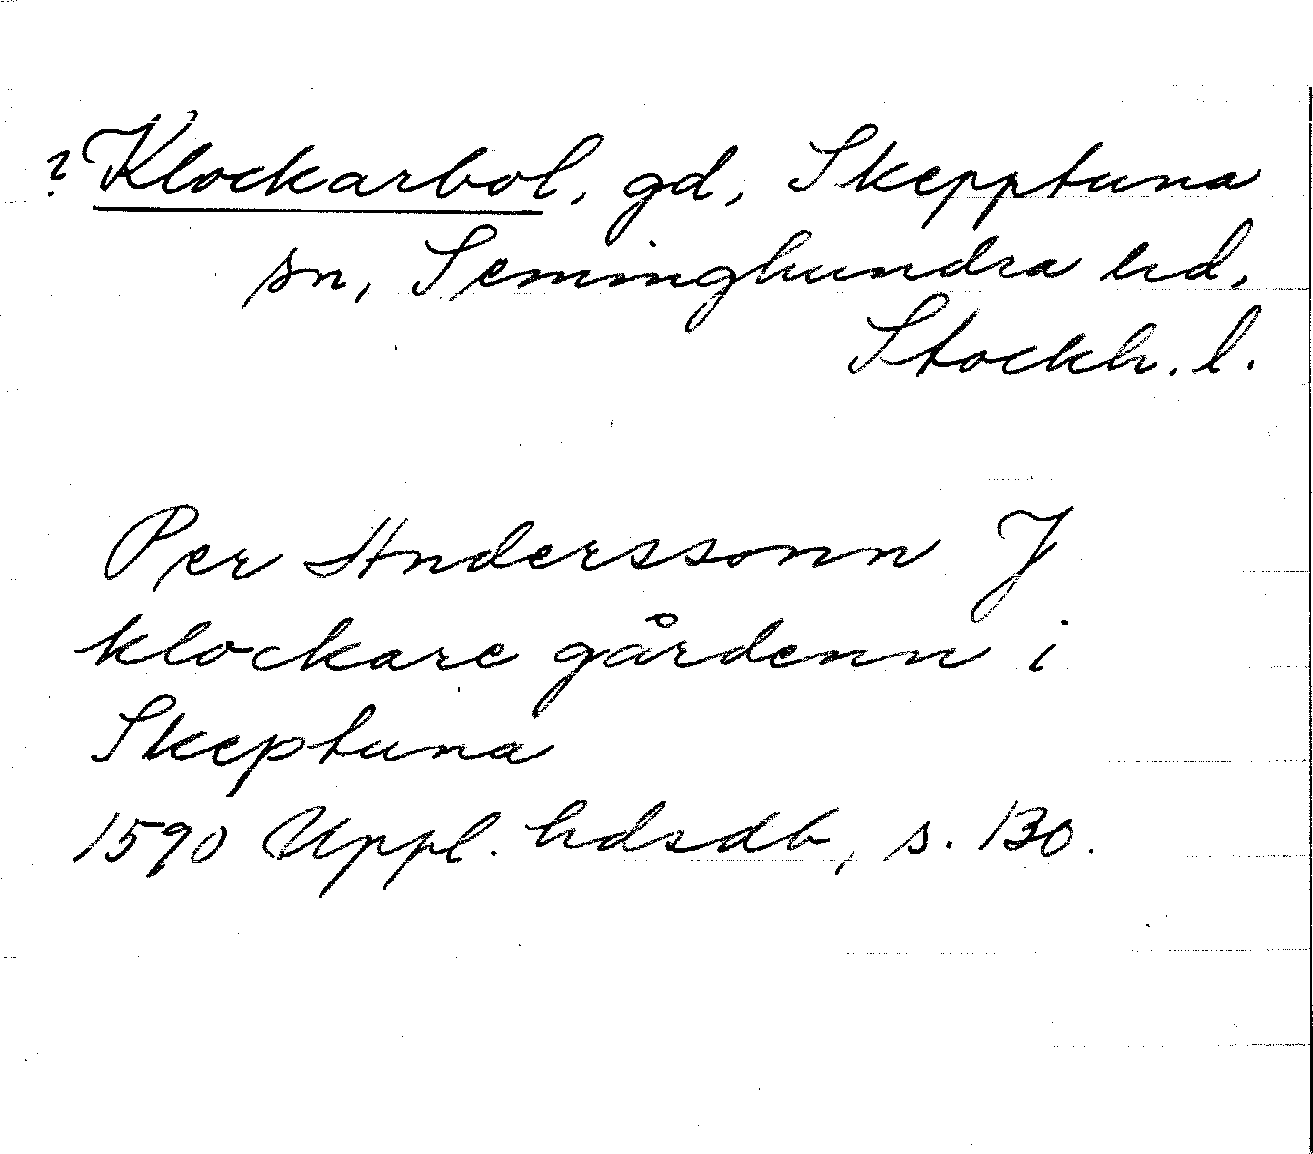 ? Klockarbol, gd, Skepptuna
sn, Seminghundra hd,
Stockh. l.
Per Anderssonn J
klockare gårdenn i
Skeptuna
1590 Uppl. hdsdb, s. 130.